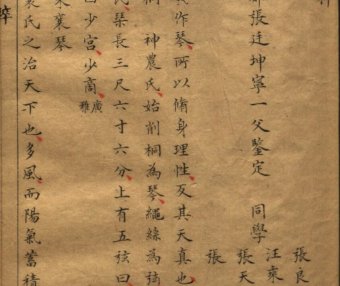 郡張廷坤寧一父鑒定　同學
張良
汪乘
張天
張
羲作琴所以脩身理性反其天真也
神農氏始削桐為琴繩絲為弦
琹長三尺六寸六分上有五弦曰
少宮少商 廣雅
襄琴
襄氏之治天下也多風而陽氣蓄積